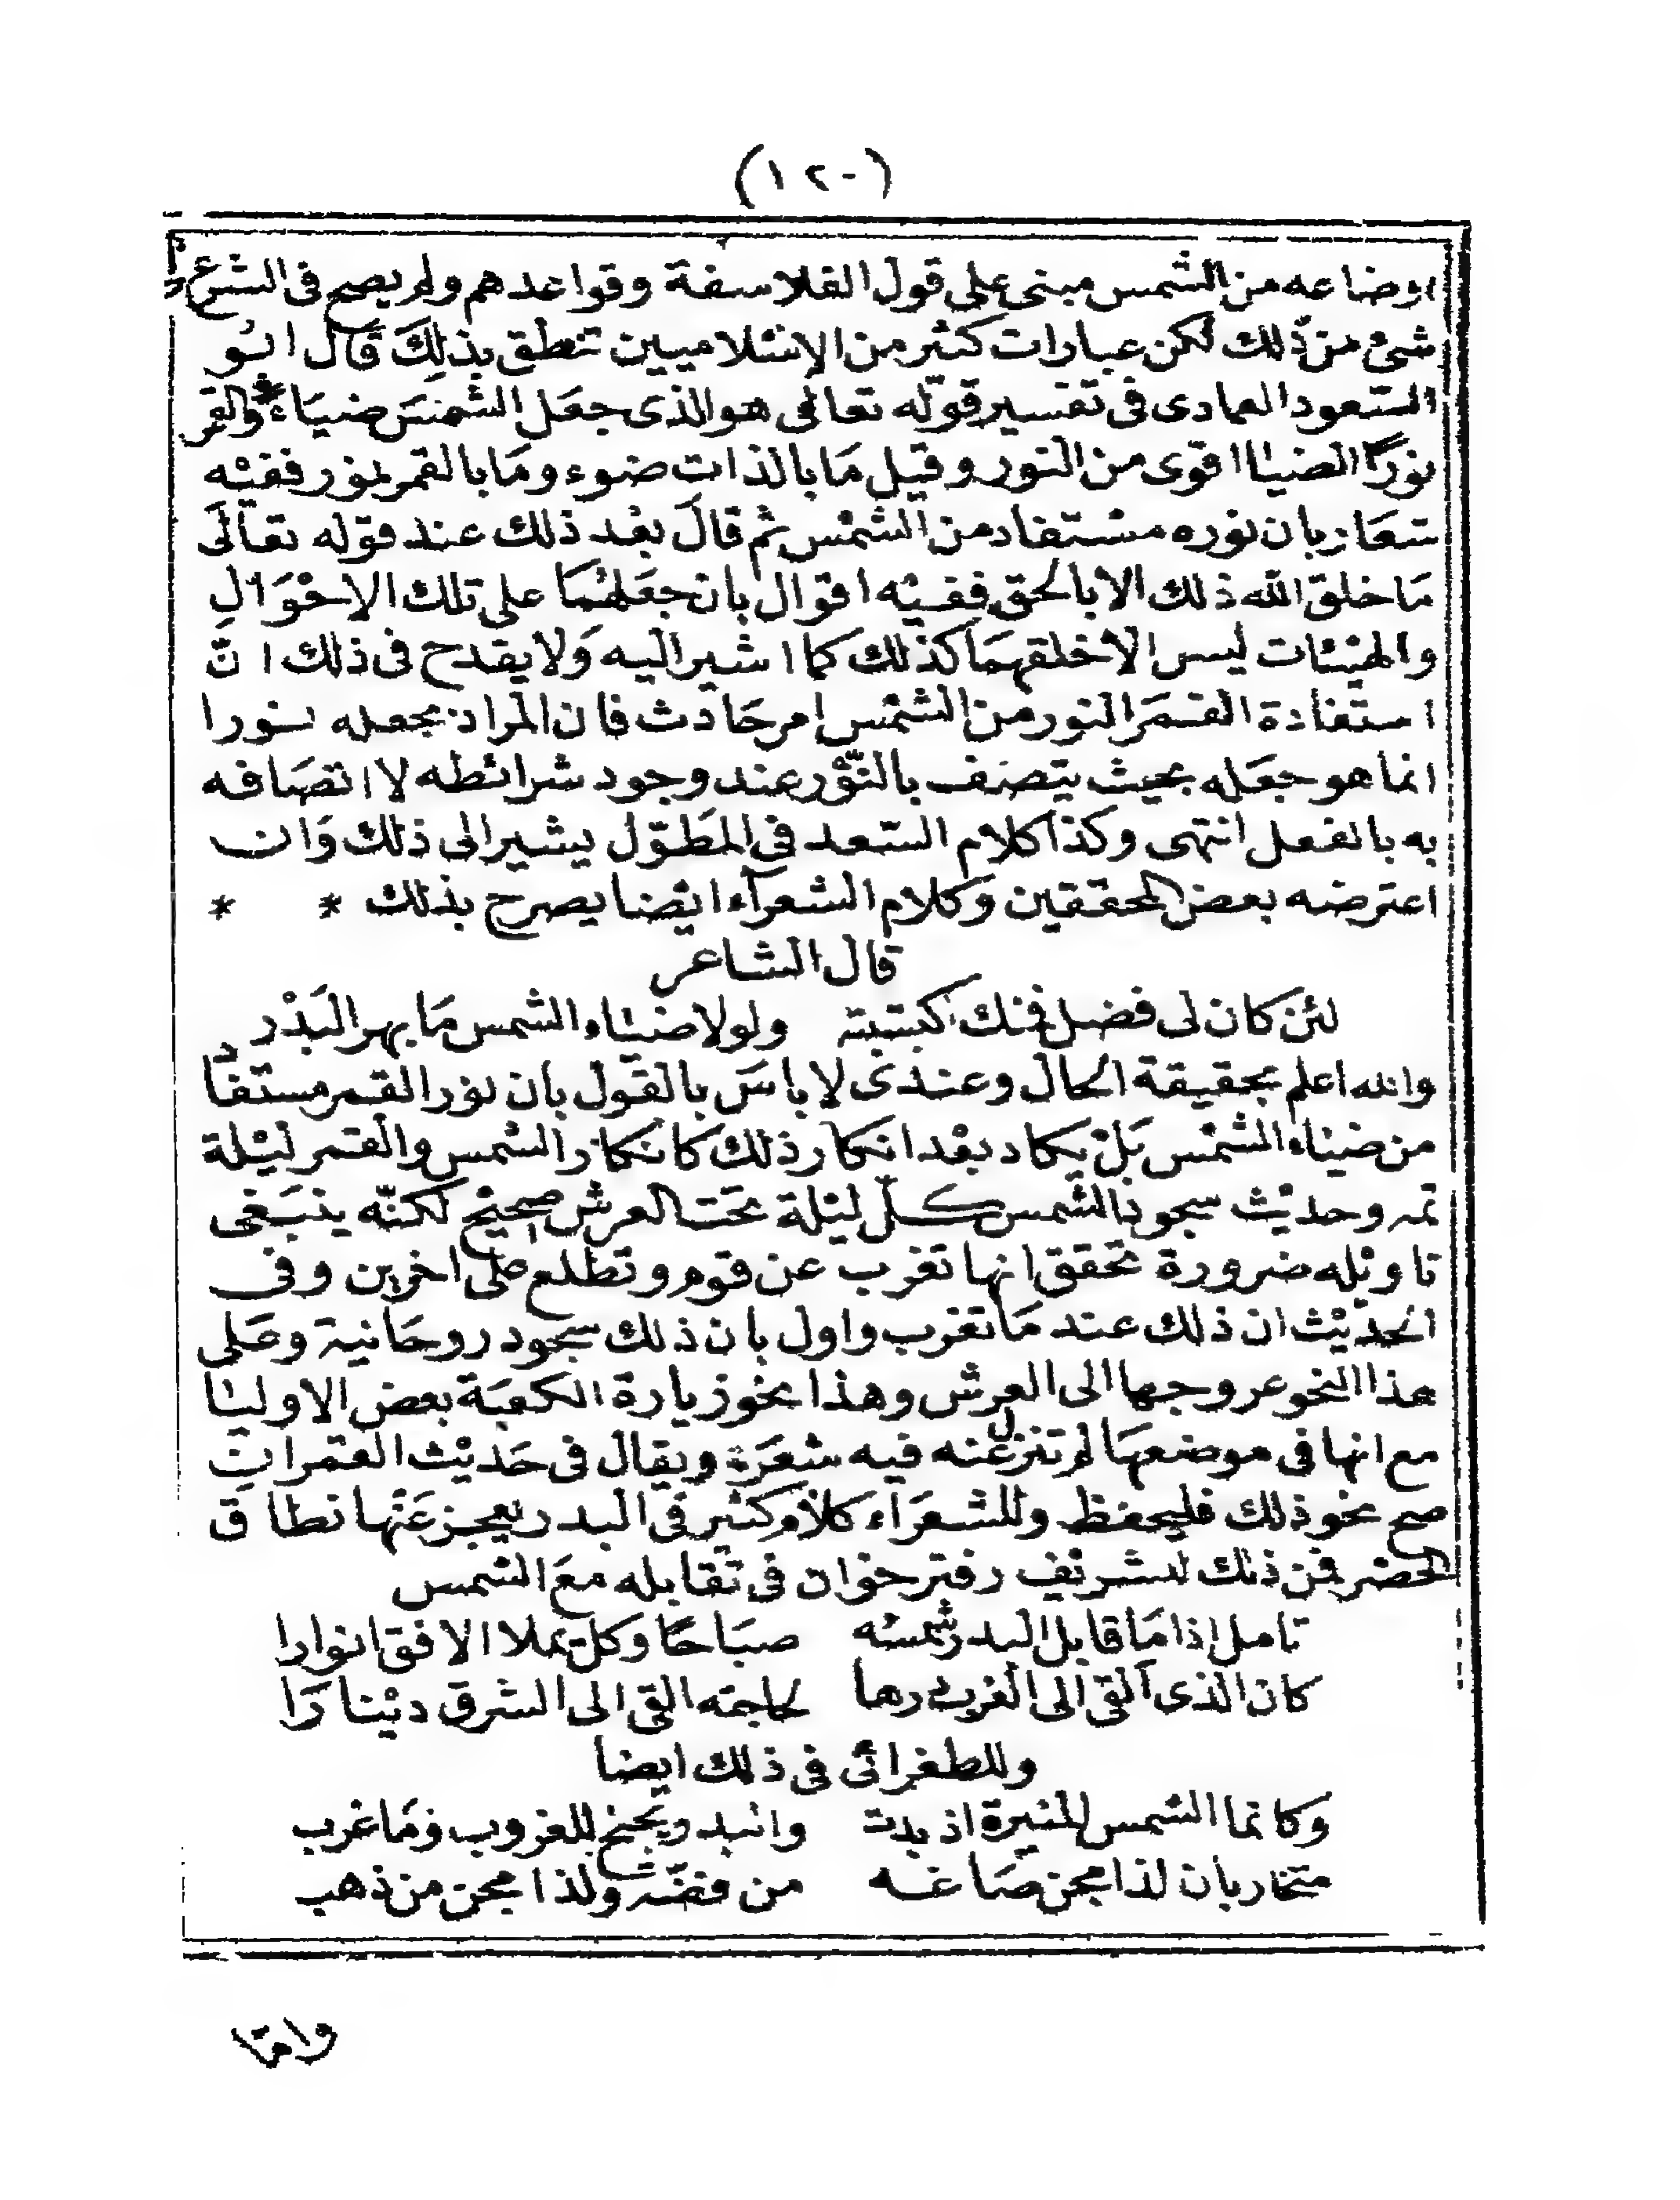 (١٢٠)
اوضاعه من الشمس مبنى على قول الفلاسفة وقواعدهم ولم يصح فى الشرع
شئ من ذلك لكن عبارات كثير من الإسلاميين تنطق بذلك قال ابو
السعود العمادى فى تفسير قوله تعالى هو الذى جعل الشمس ضياء والقمر
نورًا الضياء اقوى من النور وقيل ما بالذات ضوء وما بالقمر نور ففيه
شعار بان نوره مستفاد من الشمس ثم قال بعد ذلك عند قوله تعالى
ما خلق الله ذلك الا بالحق ففيه اقوال بان جعلهما على تلك الاحوال
والهيئات ليس الا خلقهما كذلك كما اشير اليه ولا يقدح فى ذلك ان
استفادة القمر النور من الشمس امر حادث فان المراد بجعله نورا
انما هو جعله بحيث يتصف بالنور عند وجود شرائطه لا اتصافه
به بالفعل انتهى وكذا كلام السعد فى المطوّل يشير الى ذلك وان
اعترضه بعض المحققين وكلام الشعرآء ايضا يصرح بذلك * *
قال الشاعر
لئن كان لى فضل فمنك كسبته ولولا ضياء الشمس ما بهر البدر
والله اعلم بحقيقة الحال وعندى لا باس بالقول بان نور القمر مستفاد
من ضياء الشمس بل يكاد بعد انكار ذلك كانكار الشمس والقمر ليلة
تمه وحديث سجود الشمس كل ليلة تحت العرش صحيح لكنّه ينبغى
تاويله ضرورة تحقق انها تغرب عن قوم وتطلع على اخرين وفى
الحديث ان ذلك عند ما تغرب واول بان ذلك سجود روحانية وعلى
هذا النحو عروجها الى العرش وهذا نحو زيارة الكعبة بعض الاوليا
مع انها فى موضعها لم تنزل عنه فيه شعرة ويقال فى حديث القمر ان
صح نحو ذلك فليحفظ وللشعراء كلام كثير فى البدر يعجز عنها نطاق
الحصر فمن ذلك للشريف دفتر خوان فى تقابله مع الشمس
تامل اذا ما قابل البدر شمسه صباحًا وكل يملا الافق انوارا
كان الذى القى الى الغرب درهما لحاجته القى الى الشرق دينارا
وللطغرائى فى ذلك ايضا
وكانما الشمس المنيرة اذ بدت والبدر يجنح للغروب وما غرب
متحاربان لذا مجن صاغه من فضة ولذا مجن من ذهب
وامّا